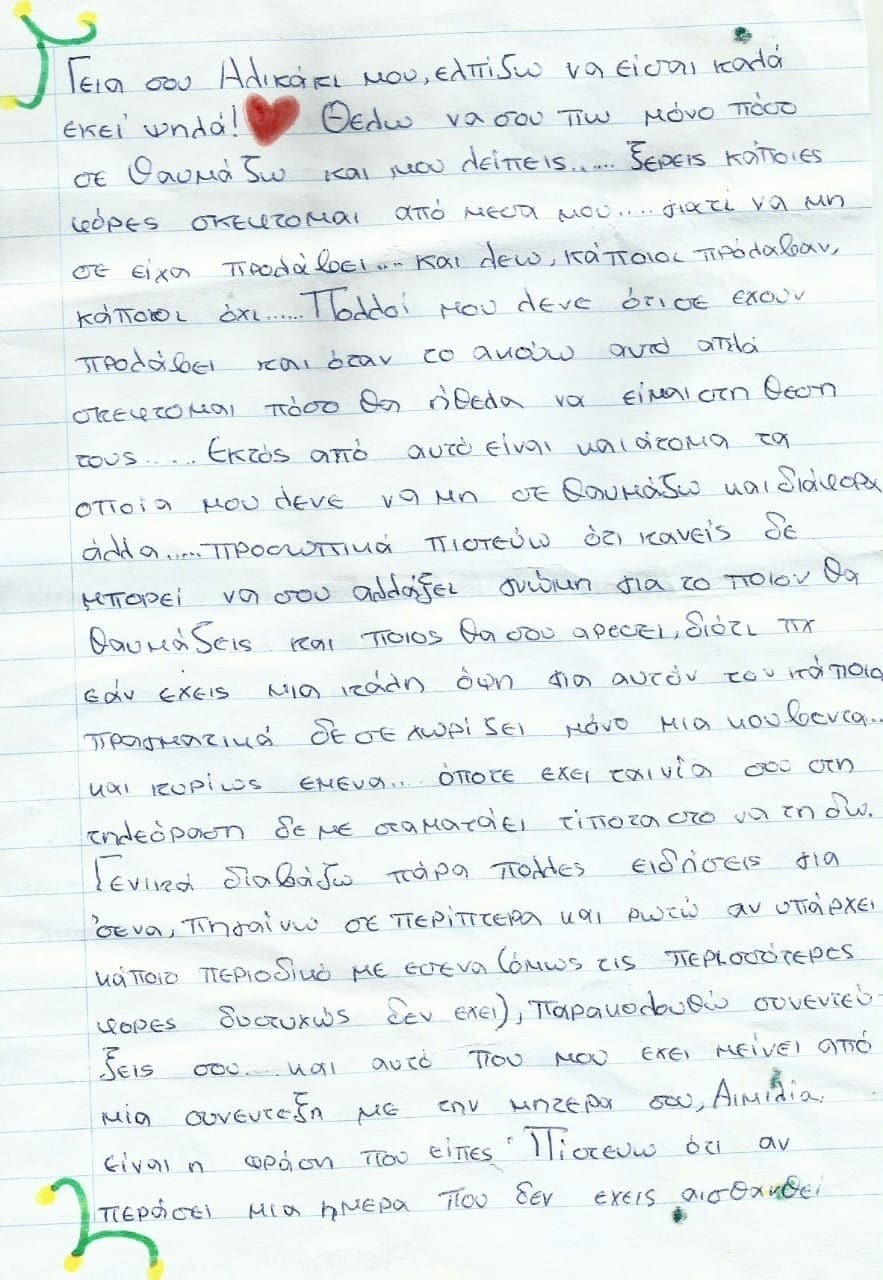 Γεια σου Αλικάκι μου, ελπίζω να είσαι καλά
εκεί ψηλά! Θελω να σου πω μόνο πόσο
σε θαυμάζω και μου λείπεις..... Ξερεις κάποιες
φόρες σκεφτομαι από μεσα μου.... γιατί να μη
σε είχα προλάβει... και λεω, κάποιοι πρόλαβαν,
κάποιοι όχι...... Πολλοί μου λενε ότι σε εχουν
προλάβει και όταν το ακούω αυτό απλά
σκεφτομαι πόσο θα ήθελα να είμαι στη θεση
τους..... Εκτός από αυτό είναι και άτομα τα
οποία μου λενε να μη σε θαυμάζω και διάφορα
άλλα..... προσωπικά πιστεύω ότι κανείς δε
μπορεί να σου αλλάξει γνώμη για το ποιον θα
θαυμάζεις και ποιος θα σου αρεσει, διότι πχ
εάν εχεις μια κάλη όψη για αυτόν τον κάποιο
πραγματικά δε σε χωρίζει μόνο μια κουβεντα...
και κυρίως εμενα... όποτε εχει ταινία σου στη
τηλεόραση δε με σταματάει τίποτα στο να τη δω.
Γενικά διαβάζω πάρα πολλες ειδήσεις για
σενα, πηγαίνω σε περίπτερα και ρωτώ αν υπάρχει
κάποιο περιοδικό με εσενα (όμως τις περισσότερες
φορες δυστυχώς δεν εχει), παρακολουθώ συνεντεύ-
ξεις σου.... και αυτό που μου εχει μείνει από
μία συνεντεξη με την μητερα σου, Αιμιλία.
είναι η φράση που είπες " Πιστευω ότι αν
περάσει μια ημερα που δεν εχεις αισθανθεί